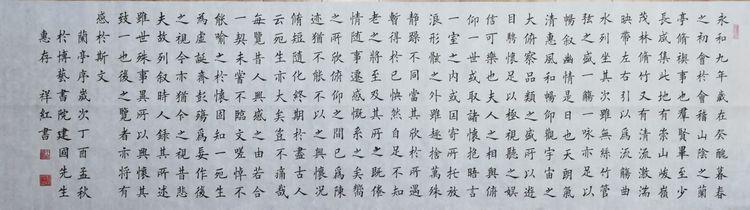 永和九年歲在癸醜暮春
之初會於會稽山陰之蘭
亭脩禊事也羣賢畢至少
長咸集此地有崇山峻嶺
茂林脩竹又有清流激湍
映帶左右引以為流觴曲
水列坐其次雖無絲竹管
弦之盛一觴一詠亦足以
暢叙幽情是日也天朗氣
清惠風和暢仰觀宇宙之
大俯察品類之盛所以遊
目騁懷足以極視聽之娛
信可樂也夫人之相與俯
仰一世或取諸懷抱晤言
一室之內或因寄所托放
浪形骸之外雖趣捨萬殊
靜躁不同當其欣於所遇
暫得於己怏然自足不知
老之將至及其所之既倦
情隨事遷感慨系之矣嚮
之所欣俯仰之間已為陳
迹猶不能不以之興懷況
脩短隨化終期於盡古人
云死生亦大矣豈不痛哉
每覽昔人興感之由若合
一契未嘗不臨文嗟悼不
能喻之於懷固知一死生
為虛誕齊彭殤為妄作後
之視今亦猶今之視昔悲
夫故列叙時人録其所述
雖世殊事異所以興懷其
致一也後之覽者亦將有
感於斯文
蘭亭序歲次丁酉孟秋
於博藝書院建國先生
惠存 祥紅書